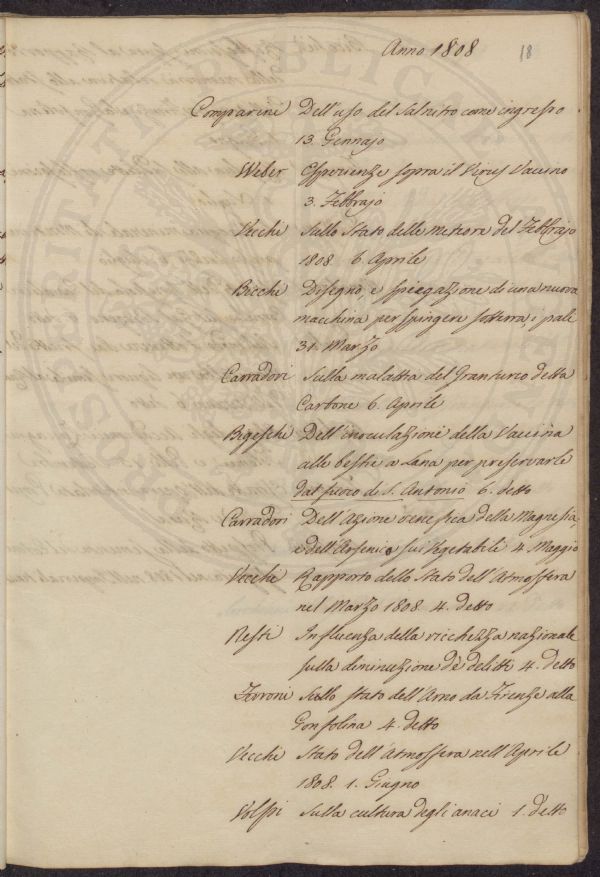 Anno 1808
18
Comparini Dell'uso del Salnitro come ingrasso
13. Gennajo
Weber Esperienze sopra il Virus Vaccino
3. Febbrajo
Vecchi Sullo Stato delle meteore del Febbrajo
1808. 6 Aprile
Bicchi Disegno, e spiegazione di una nuova
macchina per spingere sotterra, i pali
31. Marzo
Carradori Sulla malattia del Granturco detta
Carbone 6. Aprile
Bigeschi Dell'inoculazione della Vaccina
alle bestie a Lana per preservarle
dal fuoco di S. Antonio 6. detto
Carradori Dell'Azione venefica della Magnesia
e dell'Arsenico sui Vegetabili 4. Maggio
Vecchi Rapporto dello Stato dell'Atmosfera
nel Marzo 1808. 4. detto
Resti Influenza della ricchezza nazionale
sulla diminuzione de' delitti 4. detto
Ferroni Sullo stato dell'Arno da Firenze alla
Gonfolina 4. detto
Vecchi Stato dell'Atmosfera nell'Aprile
1808. 1. Giugno
Volpi Sulla cultura degli anaci 1. detto